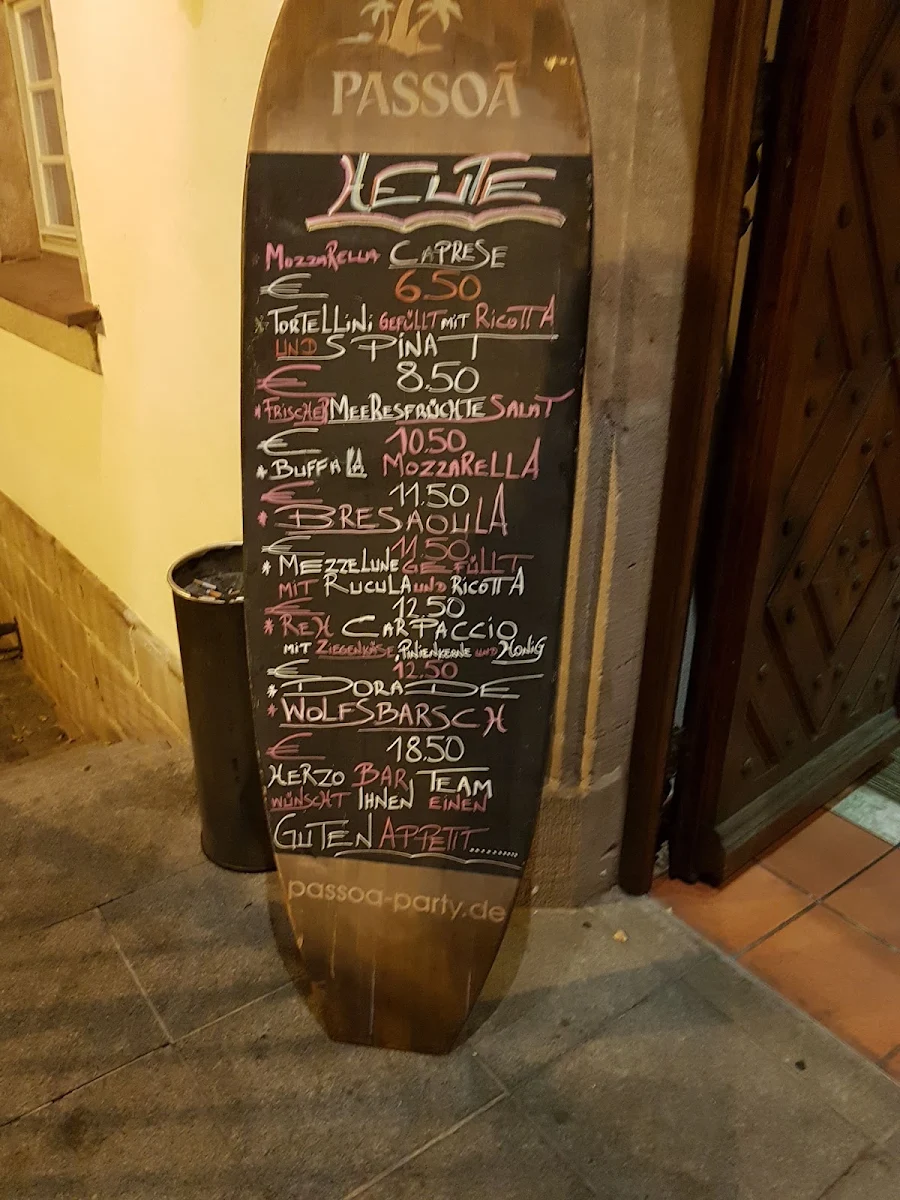 PASSOÃ
HEUTE
MOZZARELLA CAPRESE
€ 6.50
* TORTELLINI GEFÜLLT MIT RICOTTA
UND SPINAT
€ 8.50
* FRISCHER MEERESFRÜCHTE SALAT
€ 10.50
* BUFFALA MOZZARELLA
€ 11.50
* BRESAOULA
€ 11.50
* MEZZELUNE GEFÜLLT
MIT RUCULA UND RICOTTA
€ 12.50
* REH CARPACCIO
MIT ZIEGENKÄSE, PINIENKERNE UND HONIG
€ 12.50
* DORADE
* WOLFSBARSCH
€ 18.50
HERZO BAR TEAM
WÜNSCHT IHNEN EINEN
GUTEN APPETIT.........
passoa-party.de